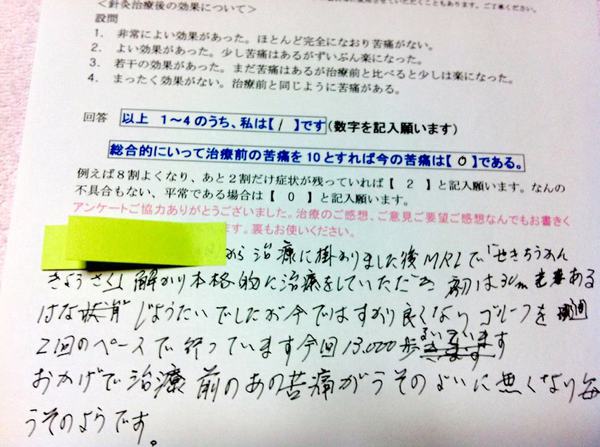 ＜針灸治療後の効果について＞
設問
1. 非常によい効果があった。ほとんど完全になおり苦痛がない。
2. よい効果があった。少し苦痛はあるがずいぶん楽になった。
3. 若干の効果があった。まだ苦痛はあるが治療前と比べると少しは楽になった。
4. まったく効果がない。治療前と同じように苦痛がある。
回答 以上 1～4のうち、私は【 1 】です(数字を記入願います)
総合的にいって治療前の苦痛を10とすれば今の苦痛は【 0 】である。
例えば8割よくなり、あと2割だけ症状が残っていれば【 2 】と記入願います。なんの
不具合もない、平常である場合は【 0 】と記入願います。
アンケートご協力ありがとうございました。治療のご感想、ご意見ご要望ご感想なんでもお書きく
す。裏もお使いください。
から治療に掛りました後MRIで「せきちうかん
きようさく」解かり本格的に治療をしていただき 初は30m ある
はな じようたいでしたが今ではすかり良くなりゴルフを 週
2回のペースで行っています今回13,000歩
おかげで治療前のあの苦痛がうそのよいに無くなり毎
うそのようです。